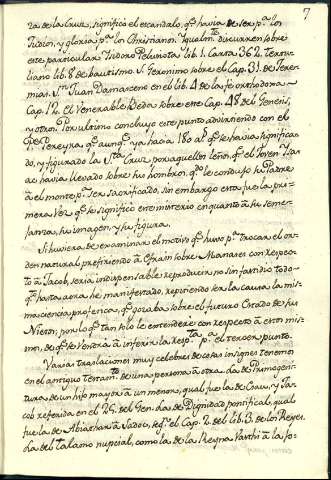 7
za de la Cruz, significó el escandalo, qᵉ havia de ser pᵃ los
Judios, y gloria pᵃ los Christianos. Igualmᵗᵉ discurren sobre
este particular Isidoro Pelusiota lib. 1. Carta 362. Tertu-
liano lib. 8 de bautismo. S. Geronimo sobre el Cap. 31. de Jere-
mias. Sⁿ Juan Damasceno en el lib. 4 de la fe orthodoxa
Cap. 12. El Venerable Beda sobre este Cap. 48 del Genesis,
y otros. Por ultimo concluyo este punto advirtiendo con el
Pereyra qᵉ aunqᵉ ya hacia 180 aˢ qᵉ se havia significa-
do, y figurado la Sᵗᵃ Cruz por aquellos leños, qᵉ el Joven Isa-
ac havia llevado sobre sus hombros, qᵉ le condujo su Padre
à el monte pᵃ ser sacrificado, sin embargo esta fue la pri-
mera vez qᵉ se significó este misterio en quanto à su seme-
lanza, su imagen, y su figura.
Si huviera de examinar el motivo qᵉ huvo pᵃ trocar el or-
den natural prefiriendo à Efrain sobre Manases con respec-
to à Jacob, seria indispensable reproducir no sin fastidio todo
qᵉ hasta aora he manifestado, repitiendo ser la causa la mis-
ma ciencia profetica, qᵉ gozaba sobre el futuro Estado de sus
Nietos, por lo qᵉ tan solo se entenderá con respecto à Dios mis-
mo, de qᵉ se vendrá à inferir la respᵗᵃ pᵃ el tercer punto.
Varias traslaciones muy celebres de cosas insignes tenemos
en el antiguo testamᵗᵒ de una persona à otra. La de Primogeni-
tura de un hijo mayor à un menor, qual fue la de Esau, y Ja-
cob referida en el 25 del Gen. La de Dignidad pontifical, qual
fue la de Abiathar à Sadoc, segⁿ el Cap. 2 del lib. 3 de los Reyes.
La del talamo nupcial, como la de la Reyna Vasthi à la jo-